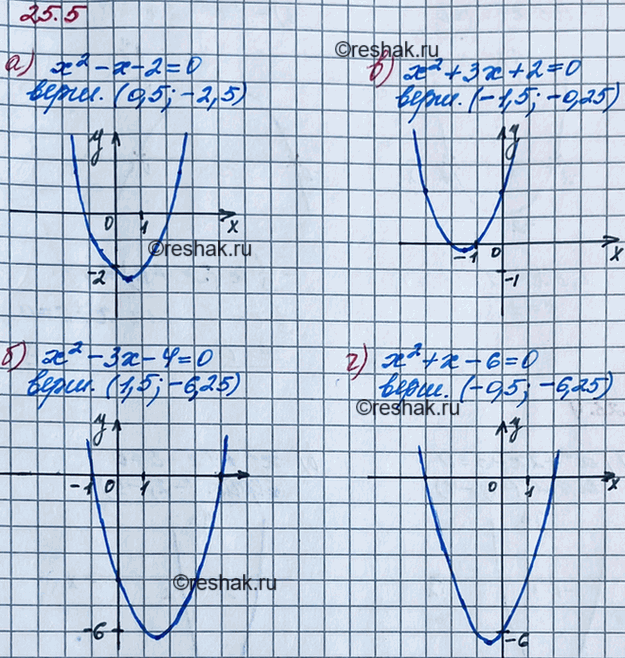 25.5
©reshak.ru
а) x² - x - 2 = 0
верш. (0,5; -2,5)
y
0
1
x
©reshak.ru
-2
в) x² + 3x + 2 = 0
верш. (-1,5; -0,25)
y
-1
0
x
-1
б) x² - 3x - 4 = 0
верш. (1,5; -6,25)
y
-1
0
1
©reshak.ru
-6
г) x² + x - 6 = 0
верш. (-0,5; -6,25)
©reshak.ru
y
0
1
x
-6